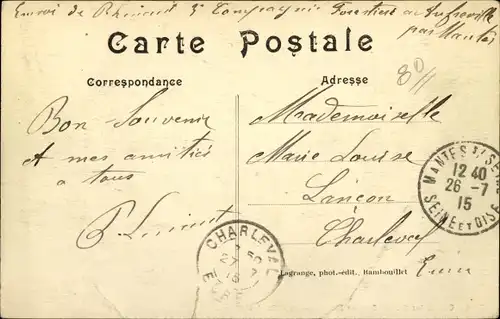 Envoi de 5e Compagnie
par Mantes
Carte Postale
80
Correspondance
Adresse
Bon Souvenir
A mes amitiés
a tous
Mademoiselle
Marie Louise
Lançon
Charleval
Eure
MANTES S/ SEINE
12 40
26 - 7
15
SEINE ET OISE
CHARLEVAL
Lagrange, phot.-édit., Rambouillet